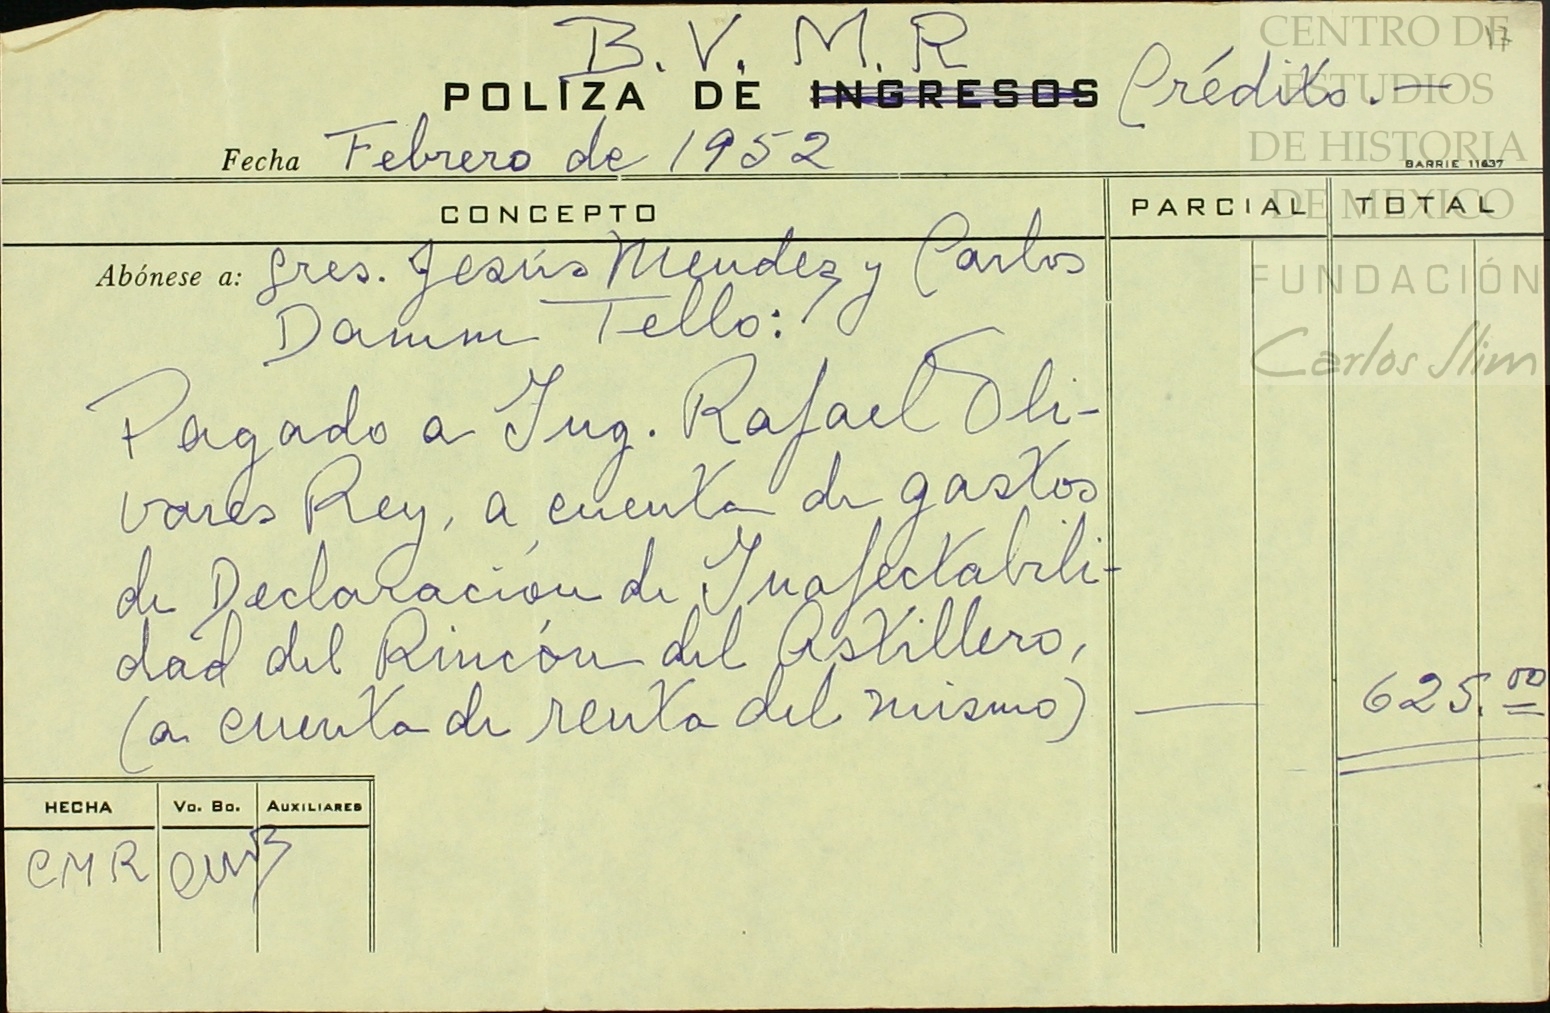 B. V. M. R
17
POLIZA DE INGRESOS Crédito.—
Fecha Febrero de 1952
BARRIE 11637
CONCEPTO PARCIAL TOTAL
Abónese a: Sres. Jesús Mendez y Carlos
Damm Tello:
Pagado a Ing. Rafael Oli-
vares Rey, a cuenta de gastos
de Declaración de Inafectabili-
dad del Rincón del Astillero,
(a cuenta de renta del mismo) — 625.00
HECHA Vo. Bo. AUXILIARES
CMR
CENTRO DE
ESTUDIOS
DE HISTORIA
DE MEXICO
FUNDACIÓN
Carlos Slim